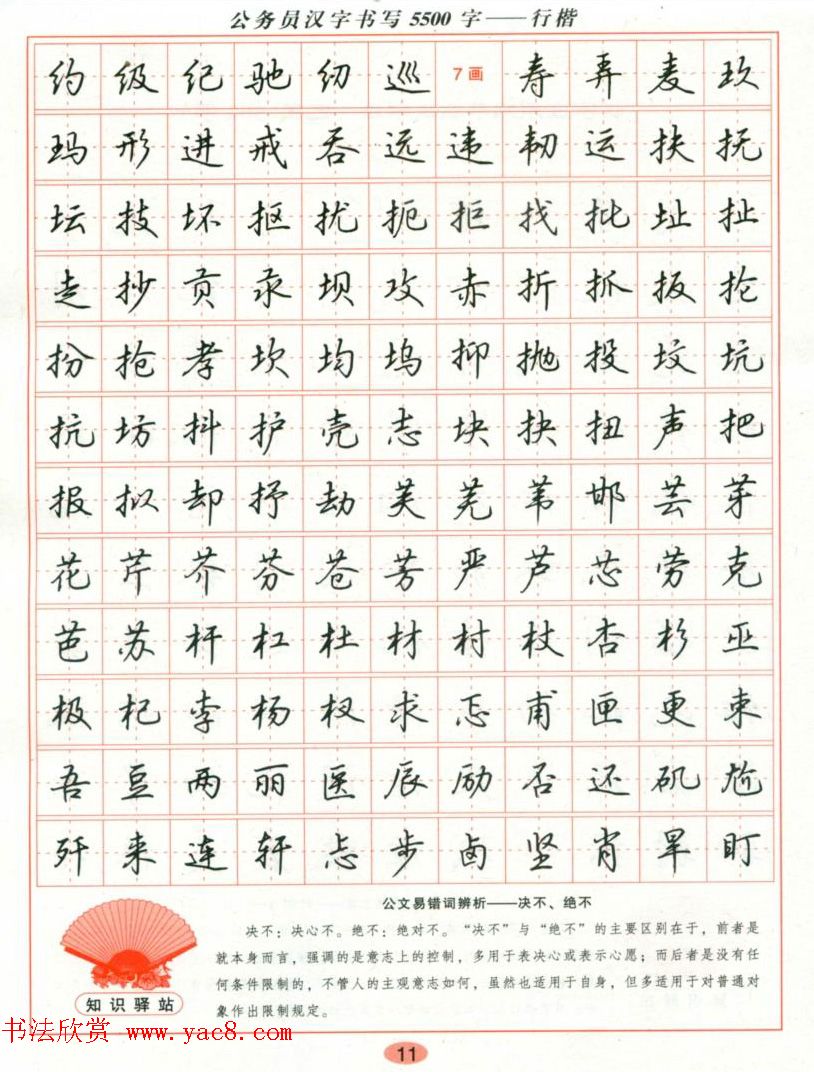 公务员汉字书写5500字——行楷
约 级 纪 驰 纫 巡 7画 寿 弄 麦 玖
玛 形 进 戒 吞 远 违 韧 运 扶 抚
坛 技 坏 抠 扰 扼 拒 找 批 址 扯
走 抄 贡 汞 坝 攻 赤 折 抓 扳 抡
扮 抢 孝 坎 均 坞 抑 抛 投 坟 坑
抗 坊 抖 护 壳 志 块 抉 扭 声 把
报 拟 却 抒 劫 芙 芜 苇 邯 芸 芽
花 芹 芥 芬 苍 芳 严 芦 芯 劳 克
芭 苏 杆 杠 杜 材 村 杖 杏 杉 巫
极 杞 李 杨 杈 求 忑 甫 匣 更 束
吾 豆 两 丽 医 辰 励 否 还 矶 尬
歼 来 连 轩 忐 步 卤 坚 肖 旱 盯
公文易错词辨析——决不、绝不
决不：决心不。绝不：绝对不。“决不”与“绝不”的主要区别在于，前者是
就本身而言，强调的是意志上的控制，多用于表决心或表示心愿；而后者是没有任
何条件限制的，不管人的主观意志如何，虽然也适用于自身，但多适用于对普通对
象作出限制规定。
知识驿站
书法欣赏 www.yac8.com
11